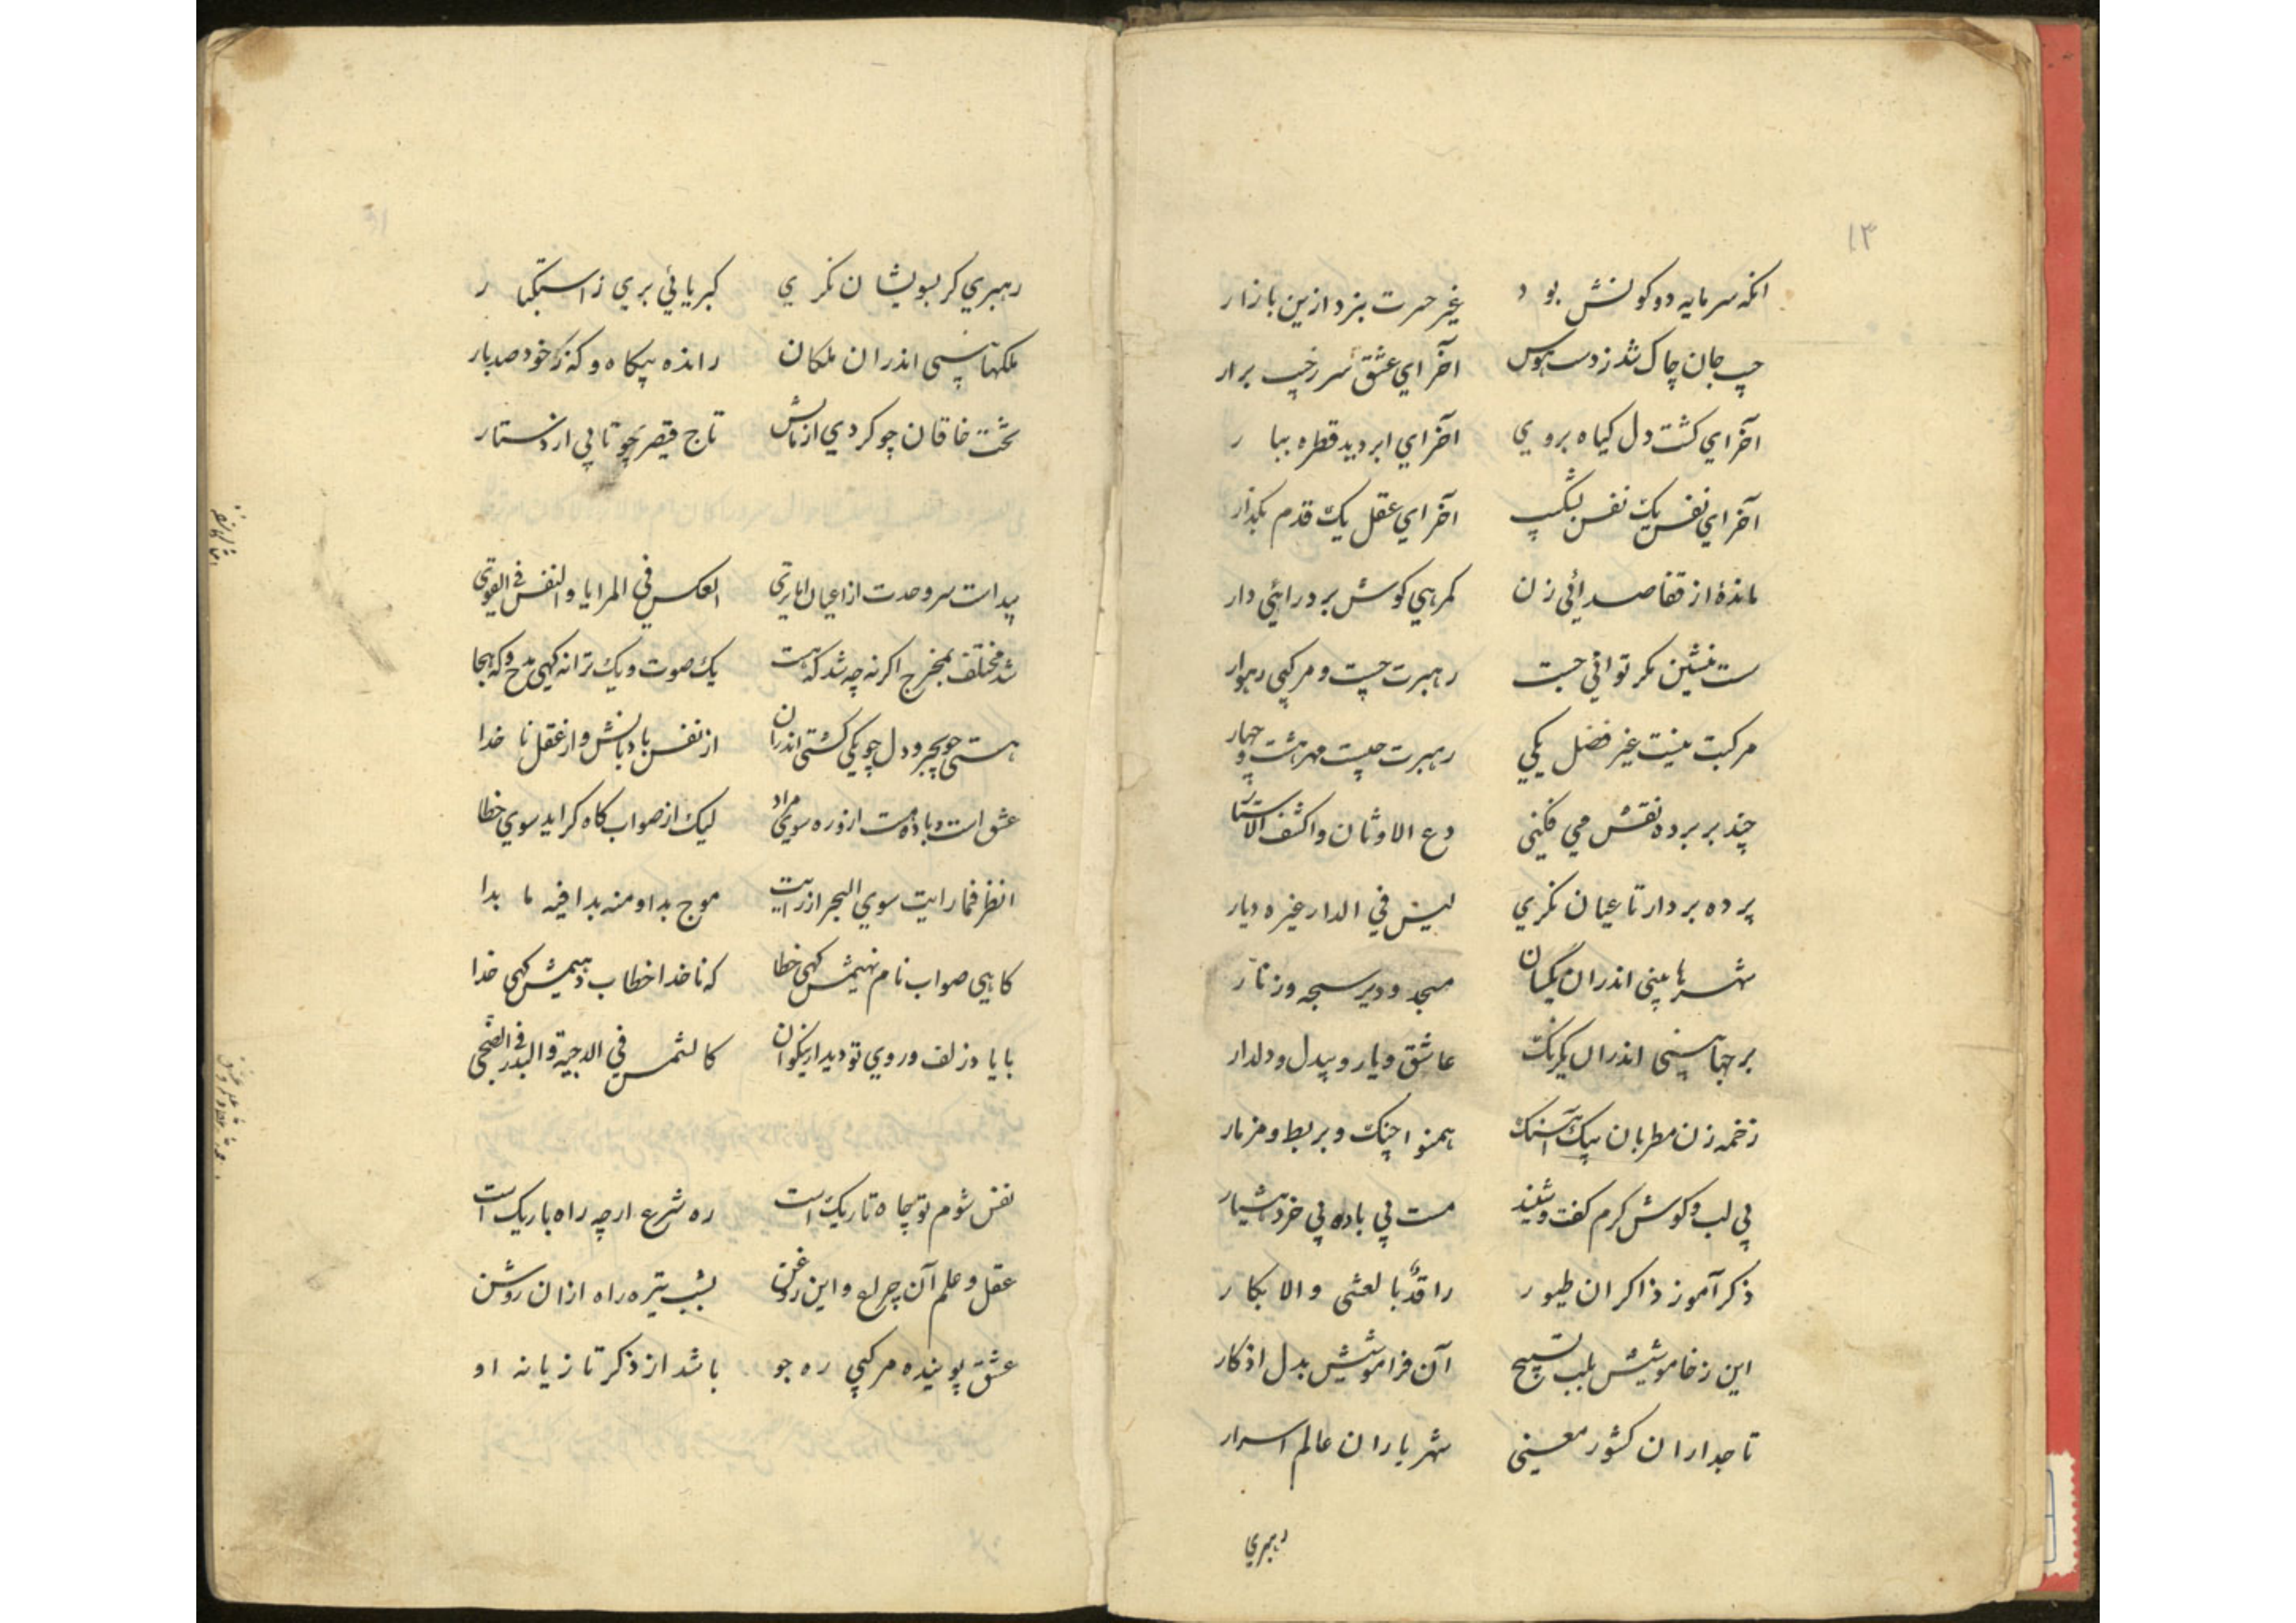 ۱۳
انکه سرمایه دو کونش بود غیر حسرت نبرد ازین بازار
جیب جان چاک شد ز دست هوس آخر ای عشق سر ز جیب برار
آخر ای کشت دل کیاه بروی آخر ای ابر دیده قطره ببار
آخر ای نفس یک نفس بشکیب آخر ای عقل یک قدم بگذار
ماندهٔ از قفا صدائی زن کمرهی کوش بر درائی دار
ست منشین مکر توانی جست رهبرت چست و مرکبی رهوار
مرکبت نیست غیر فضل یکی رهبرت چیست مهر هشت و چهار
چند بر پرده نقش می فکنی دع الاوثان واکشف الاستار
پرده بردار تا عیان نکری لیس فی الدار غیره دیار
شهرها بینی اندران یکسان مسجد و دیر سبحه و زنار
برجها بینی اندران یکرنک عاشق و یار و بیدل و دلدار
زخمه زن مطربان بیک آهنک همنوا چنک و بربط و مزمار
بی لب و کوش کرم کفت و شنید مست بی باده بی خرد هشیار
ذکرآموز ذاکران طیور بالعشی والابکار
این ز خاموشیش بلب تسبیح آن فراموشیش بدل اذکار
تاجداران کشور معنی شهریاران عالم اسرار
رهبری
رهبری کر بسویشان نکری کبریائی بری ز استکبار
ملکها بینی اندران ملکان رانده بیکاه و که ز خود صد بار
تخت خاقان چو کردی از بالش تاج قیصر چو تابی از دستار
پیداست سر وحدت از اعیان العکس فی المرایا والنفس فی القوی
شد مختلف بمخرج اکرنه چه شد که هست یک صوت و یک ترانه کهی مدح و که هجا
هستی چو بحر و دل چو یکی کشتی اندران از نفس بادبانش و از عقل ناخدا
عشق است باد و هست ازو ره سوی مراد لیک از صواب کاه کراید سوی خطا
انظر فما رایت سوی البحر اذ رایت موج بدا و منه بدا فیه ما بدا
کاهی صواب نام نهیمش کهی خطا که ناخدا خطاب دهیمش کهی خدا
باید ز زلف و روی تو دیدار نیکوان کالشمس فی الدجیة والبدر فی الضحی
نفس شوم تو چاه تاریک است ره شرع ارچه راه باریک است
عقل و علم آن چراغ و این روغن بشب تیره راه ازان روشن
عشق پوینده مرکبی ره جو باشد از ذکر تازیانه او